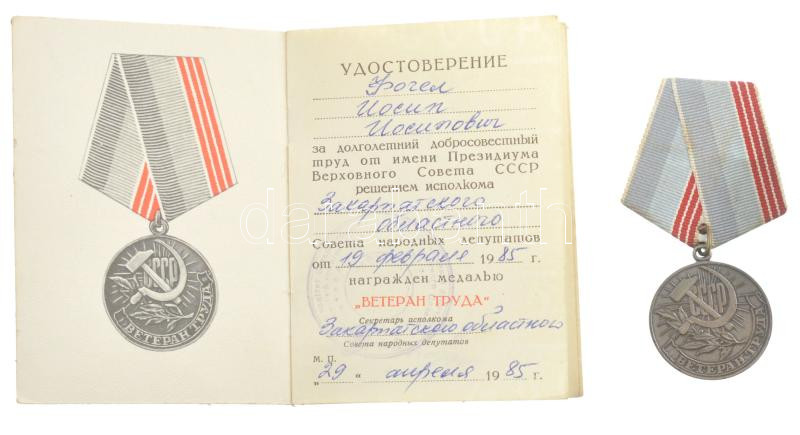 СССР
ВЕТЕРАН ТРУДА
УДОСТОВЕРЕНИЕ
Фогел
Иосип
Иосипович
за долголетний добросовестный
труд от имени Президиума
Верховного Совета СССР
решением исполкома
Закарпатского
областного
Совета народных депутатов
от 19 февраля 1985 г.
награжден медалью
„ВЕТЕРАН ТРУДА"
Секретарь исполкома
Закарпатского областного
Совета народных депутатов
М. П.
„29" апреля 1985 г.
СССР
ВЕТЕРАН ТРУДА